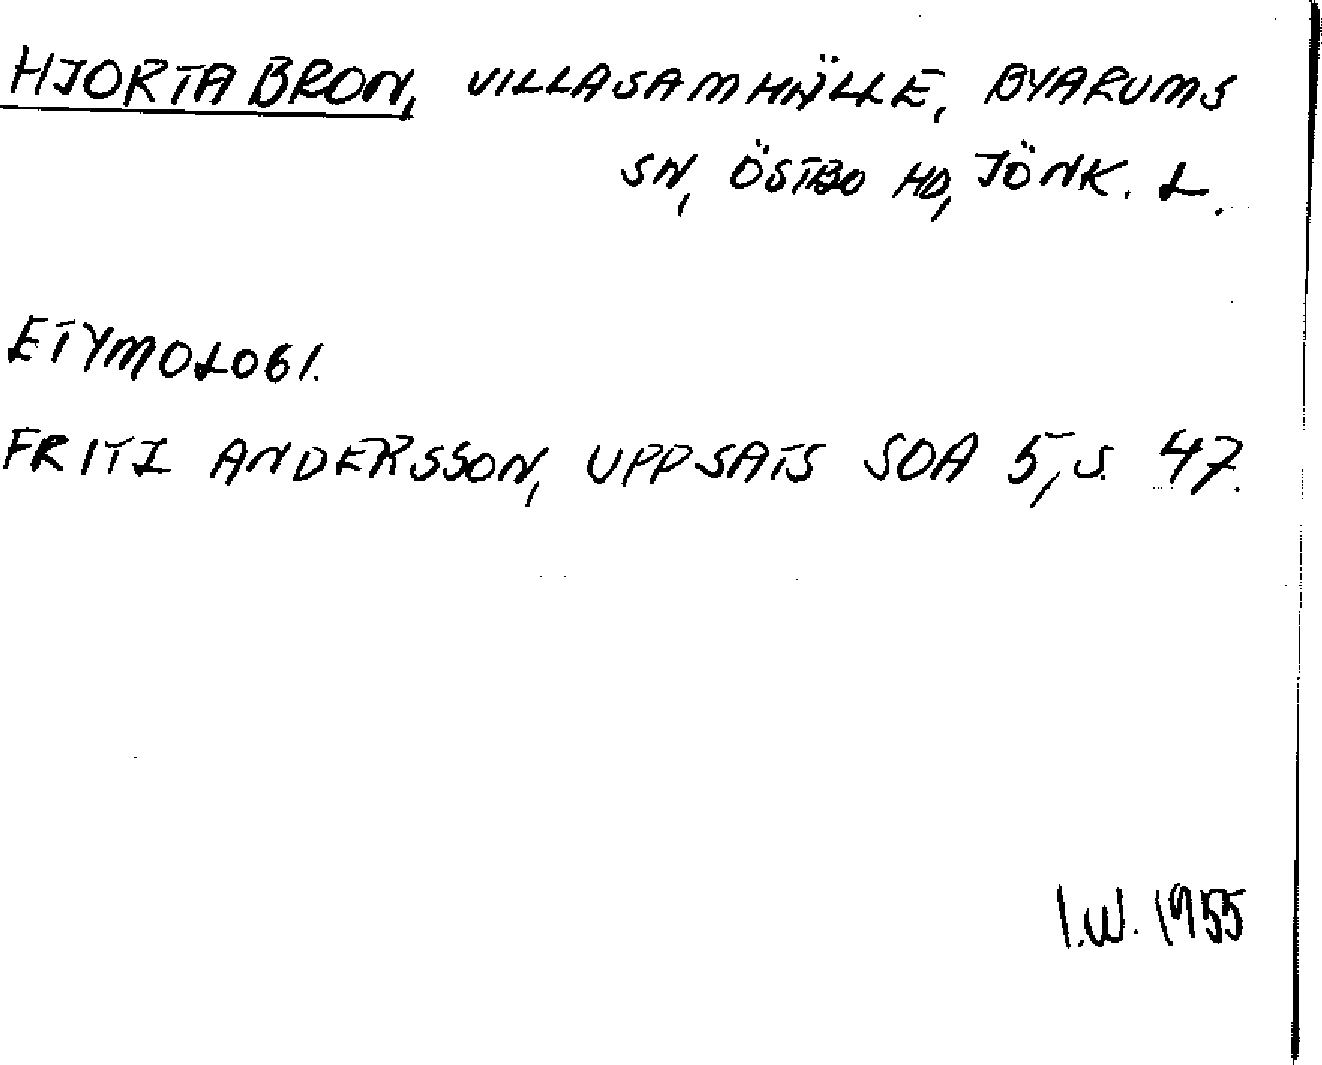 HJORTABRON, VILLASAMHÄLLE, BYARUMS
SN, ÖSTBO HD, JÖNK. L.
ETYMOLOGI.
FRITZ ANDERSSON, UPPSATS SOA 5, S. 47.
I.W. 1955